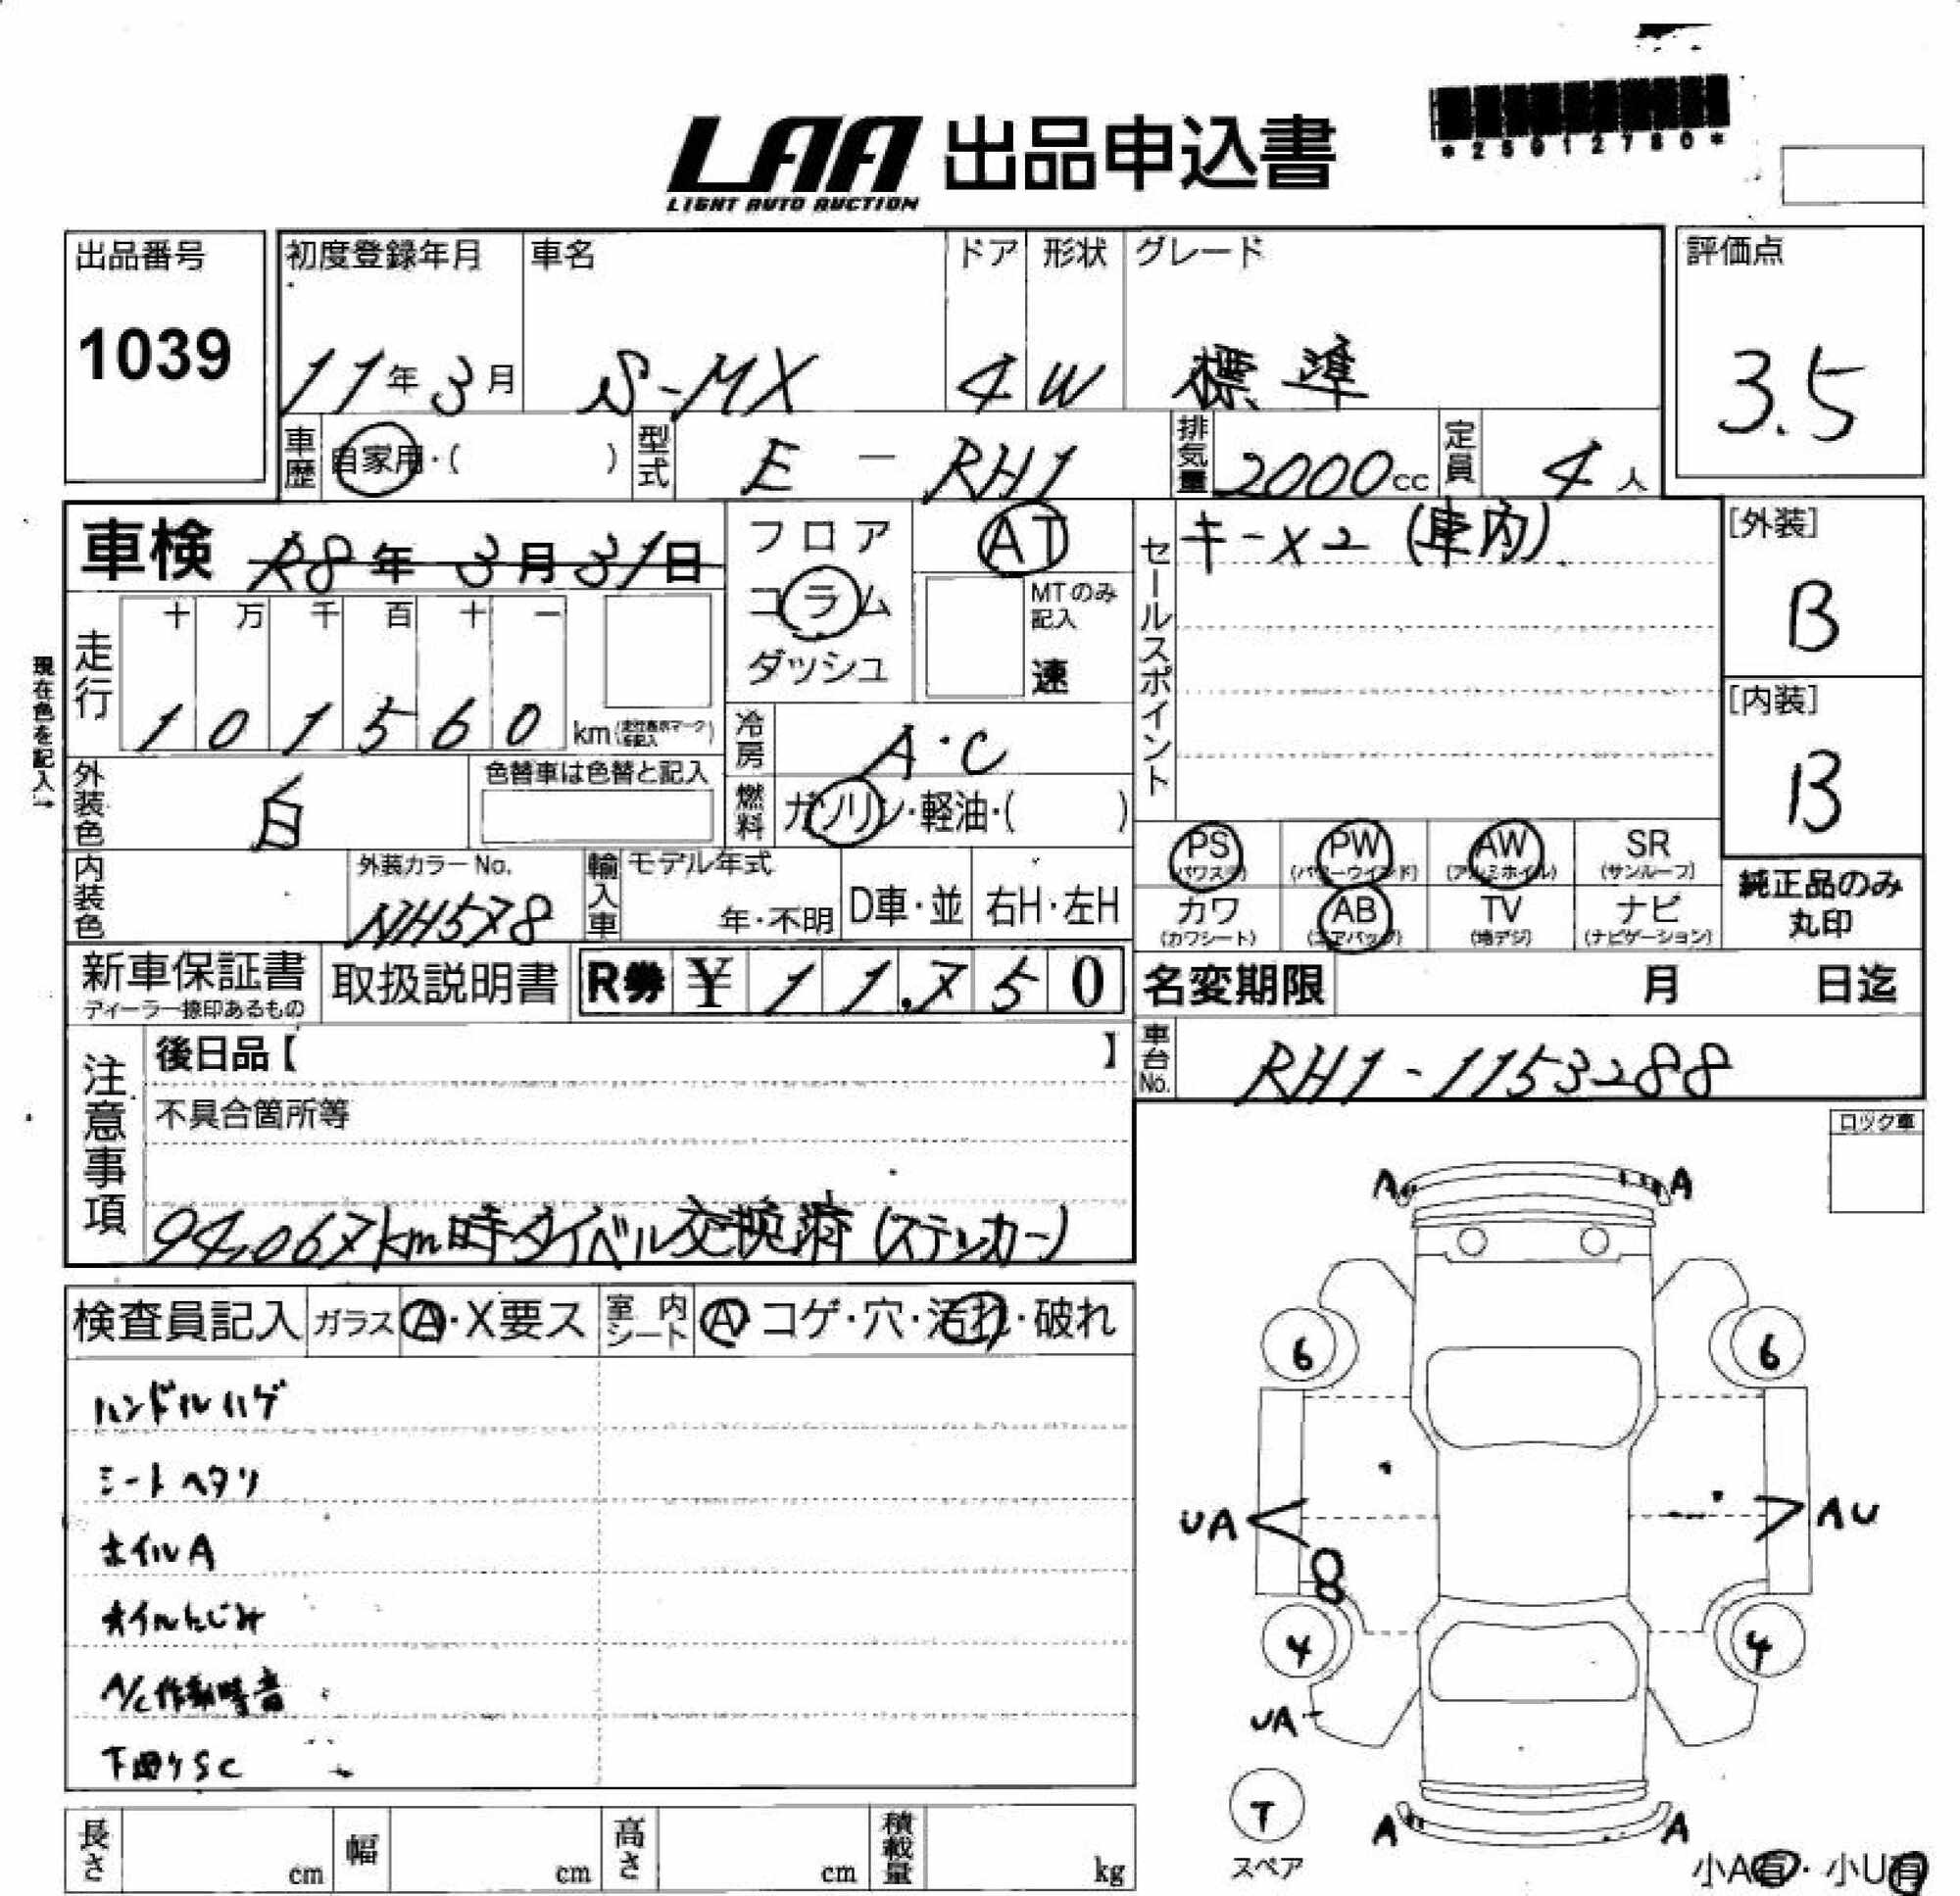 LAA 出品申込書
LIGHT AUTO AUCTION
*25012780*
出品番号
1039
初度登録年月
11年3月
車名
S-MX
ドア
4
形状
W
グレード
標準
評価点
3.5
車歴 自家用・( )
型式 E-RH1
排気量 2000cc
定員 4人
車検 R8年3月31日
フロア
コラム
ダッシュ
AT
MTのみ記入
速
セールスポイント
キー×2 (車内)
[外装]
B
[内装]
B
現在色を記入→
走行
十 万 千 百 十 一
1 0 1 5 6 0 km
冷房 A・C
外装色 白
色替車は色替と記入
燃料 ガソリン・軽油・( )
PS (パワステ)
PW (パワーウインド)
AW (アルミホイル)
SR (サンルーフ)
カワ (カワシート)
AB (エアバッグ)
TV (地デジ)
ナビ (ナビゲーション)
純正品のみ
丸印
内装色
外装カラーNo.
NH578
輸入車
モデル年式
年・不明
D車・並
右H・左H
新車保証書
ディーラー捺印あるもの
取扱説明書
R券 ¥ 11,750
名変期限 月 日迄
車台No. RH1-1153288
注意事項
後日品【 】
不具合箇所等
94,067km時タイベル交換済(ステッカー)
ロック車
検査員記入
ガラス A・X要ス
室内シート A コゲ・穴・汚れ・破れ
ハンドルハゲ
シートヘタリ
ホイルA
オイルにじみ
A/C作動時音
下回りSC
A A
6 6
UA AU
8
4 4
UA
T
スペア
A A
小A有・小U有
長さ cm
幅 cm
高さ cm
積載量 kg